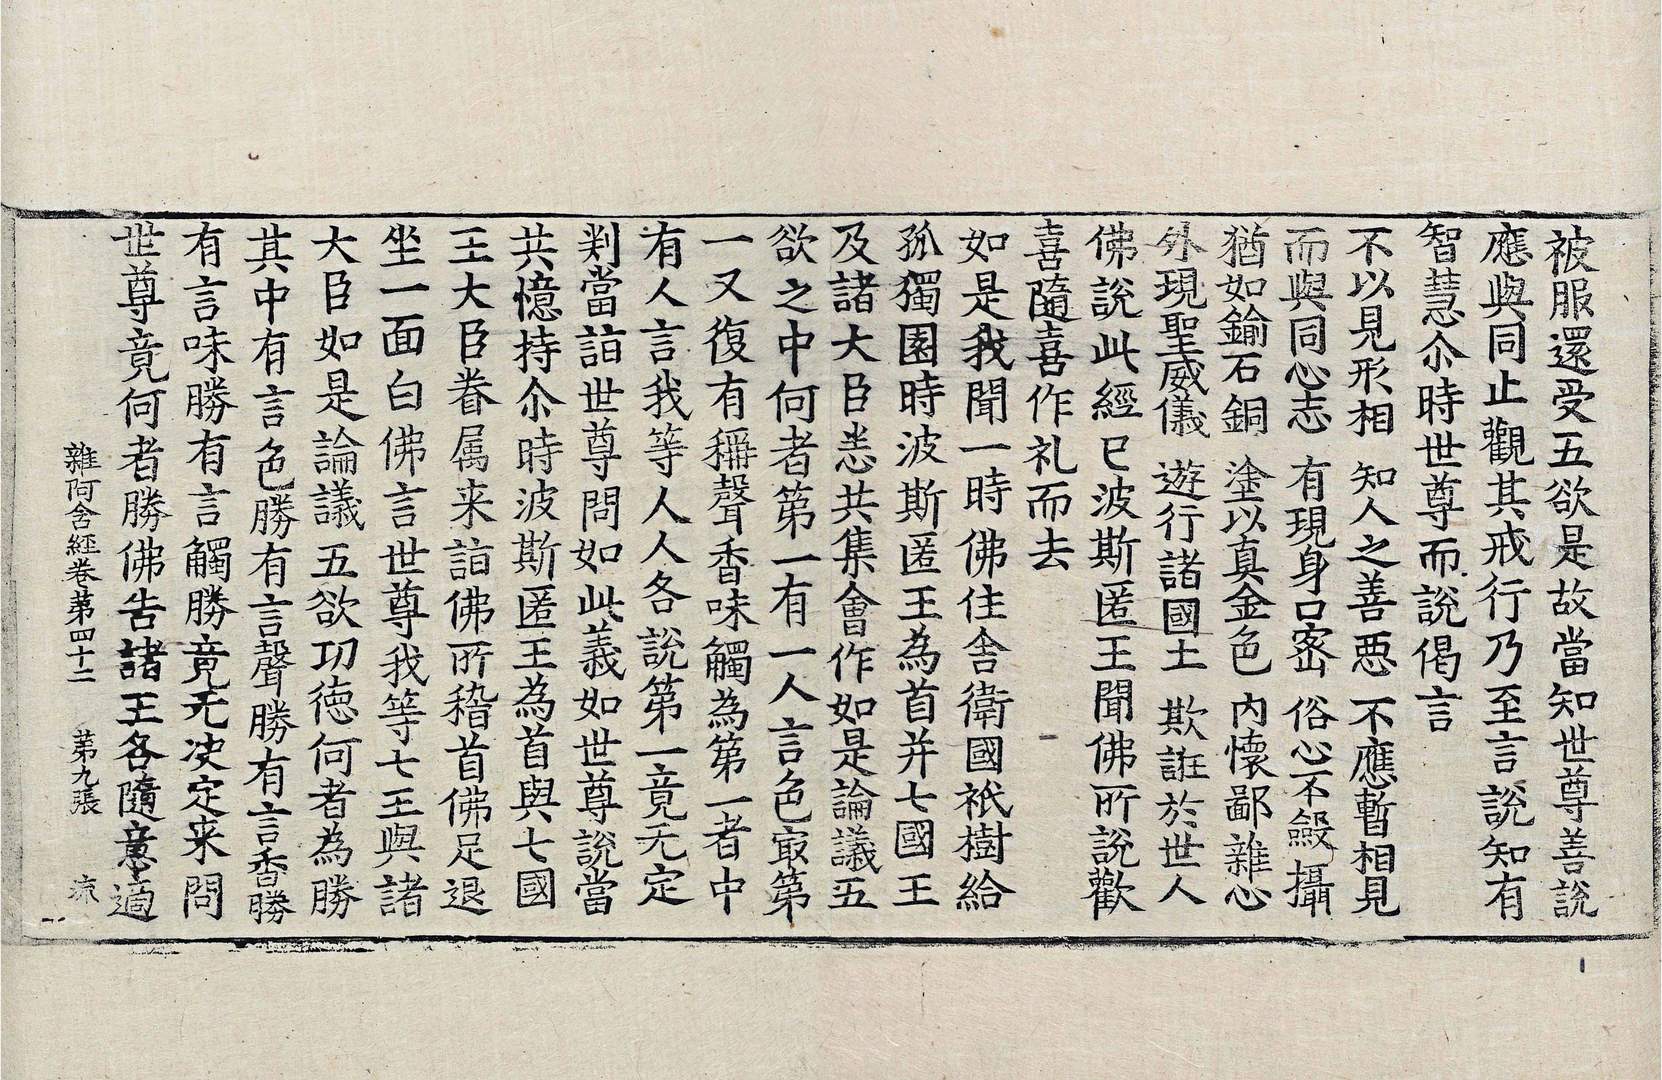 被服還受五欲是故當知世尊善說
應與同止觀其戒行乃至言說知有
智慧尒時世尊而說偈言
不以見形相　知人之善惡　不應暫相見
而與同心志　有現身口密　俗心不斂攝
猶如鍮石銅　塗以真金色　內懷鄙雜心
外現聖威儀　遊行諸國土　欺誑於世人
佛說此經已波斯匿王聞佛所說歡
喜隨喜作礼而去
如是我聞一時佛住舍衛國祇樹給
孤獨園時波斯匿王為首并七國王
及諸大臣悉共集會作如是論議五
欲之中何者第一有一人言色㝡第
一又復有稱聲香味觸為第一者中
有人言我等人人各說第一竟无定
判當詣世尊問如此義如世尊說當
共憶持尒時波斯匿王為首與七國
王大臣眷属来詣佛所稽首佛足退
坐一面白佛言世尊我等七王與諸
大臣如是論議五欲功德何者為勝
其中有言色勝有言聲勝有言香勝
有言味勝有言觸勝竟无决定来問
世尊竟何者勝佛告諸王各隨意適
雜阿含經卷第四十二　第九張　涼